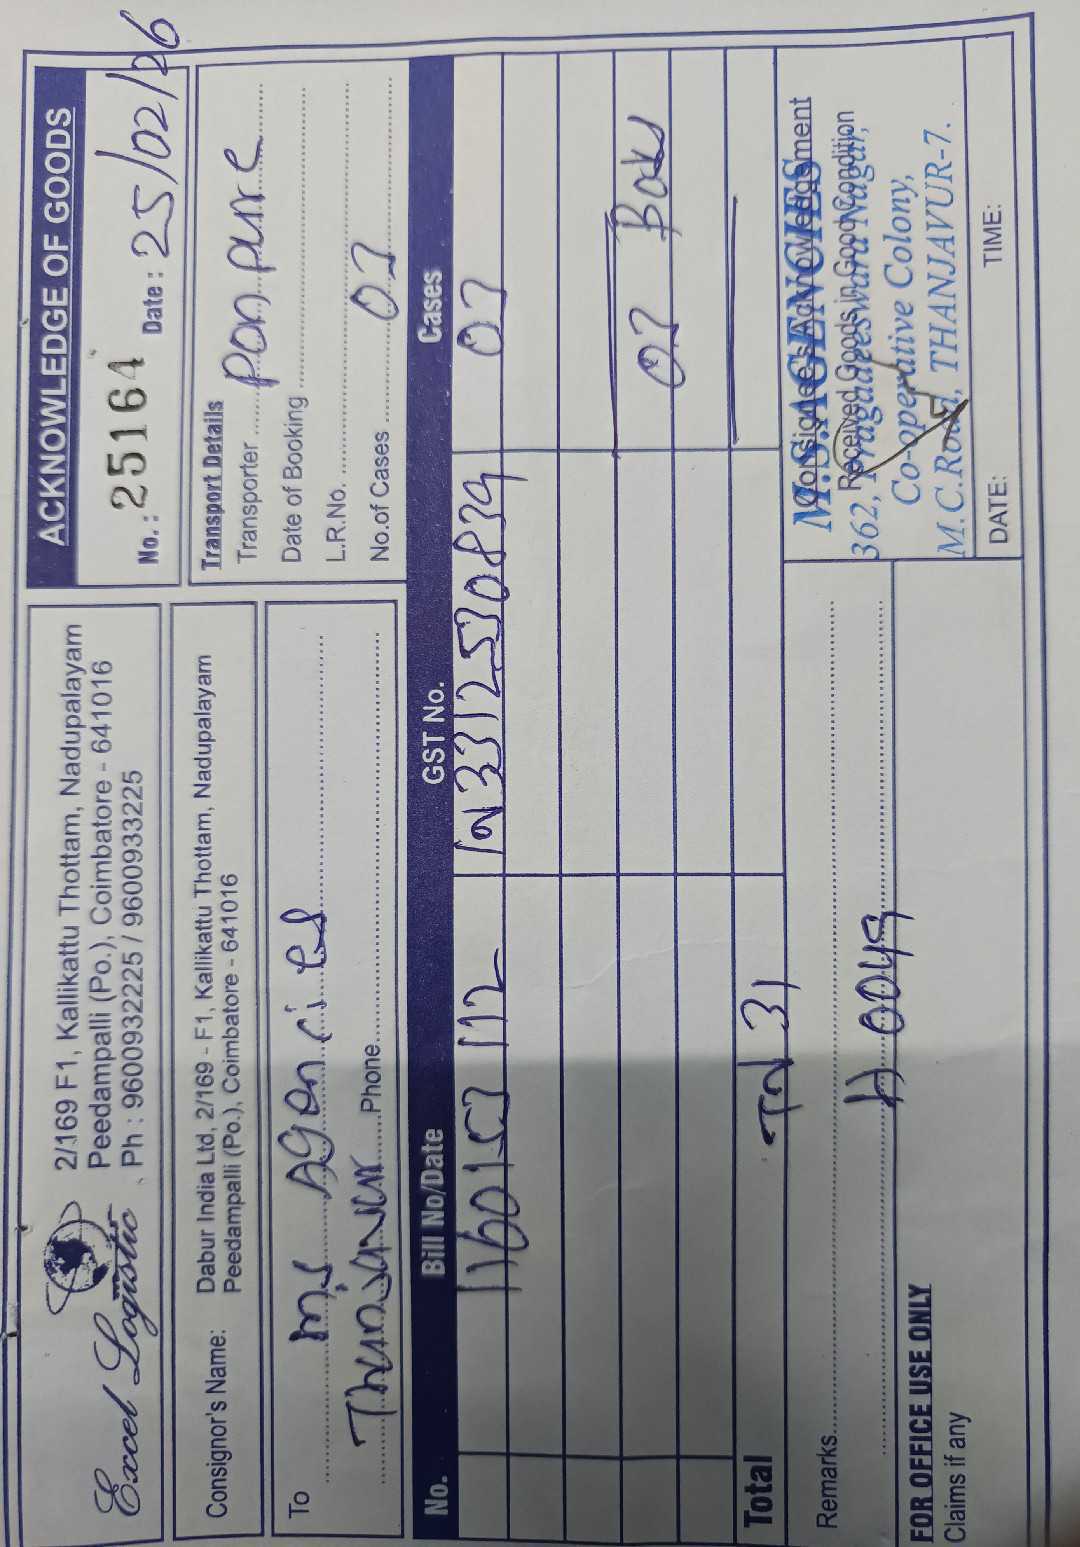 Excel Logistic
2/169 F1, Kallikattu Thottam, Nadupalayam
Peedampalli (Po.), Coimbatore - 641016
Ph : 9600932225 / 9600933225
ACKNOWLEDGE OF GOODS
No. : 25164 Date : 25/02/26
Consignor's Name: Dabur India Ltd, 2/169 - F1, Kallikattu Thottam, Nadupalayam
Peedampalli (Po.), Coimbatore - 641016
Transport Details
Transporter
Date of Booking
L.R.No.
No.of Cases 07
To M.S Agencies
Phone
No. Bill No/Date GST No. Cases
07
07
Total
Remarks
Consignee's Acknowledgement
Received Goods in Good Condition
M.S.AGENCIES
362, Piragadeeswara Nagar,
Co-operative Colony,
M.C.Road, THANJAVUR-7.
DATE: TIME:
FOR OFFICE USE ONLY
Claims if any